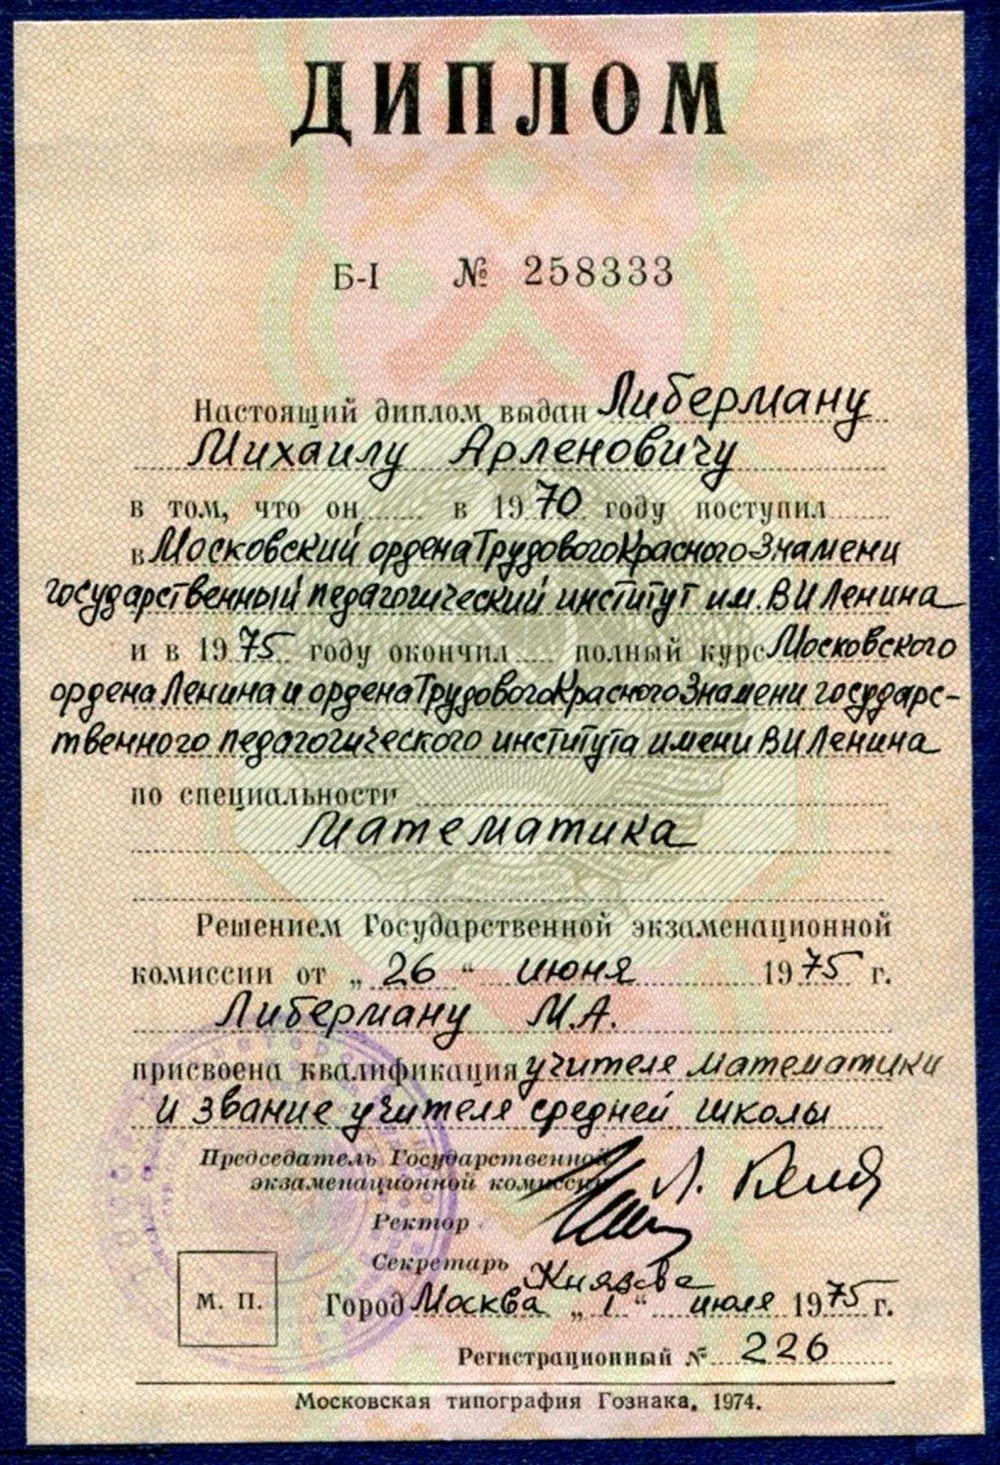 ДИПЛОМ
Б-I № 258333
Настоящий диплом выдан Либерману
Михаилу Арленовичу
в том, что он в 1970 году поступил
в Московский ордена Трудового Красного Знамени
государственный педагогический институт им. В И Ленина
и в 1975 году окончил полный курс Московского
ордена Ленина и ордена Трудового Красного Знамени государс-
твенного педагогического института имени В И Ленина
по специальности
Математика
Решением Государственной экзаменационной
комиссии от „26“ июня 1975 г.
Либерману М.А.
присвоена квалификация учителя математики
и звание учителя средней школы
Председатель Государственной
экзаменационной комиссии
Ректор
Секретарь
М. П.
Город Москва „1“ июля 1975 г.
Регистрационный № 226
Московская типография Гознака, 1974.